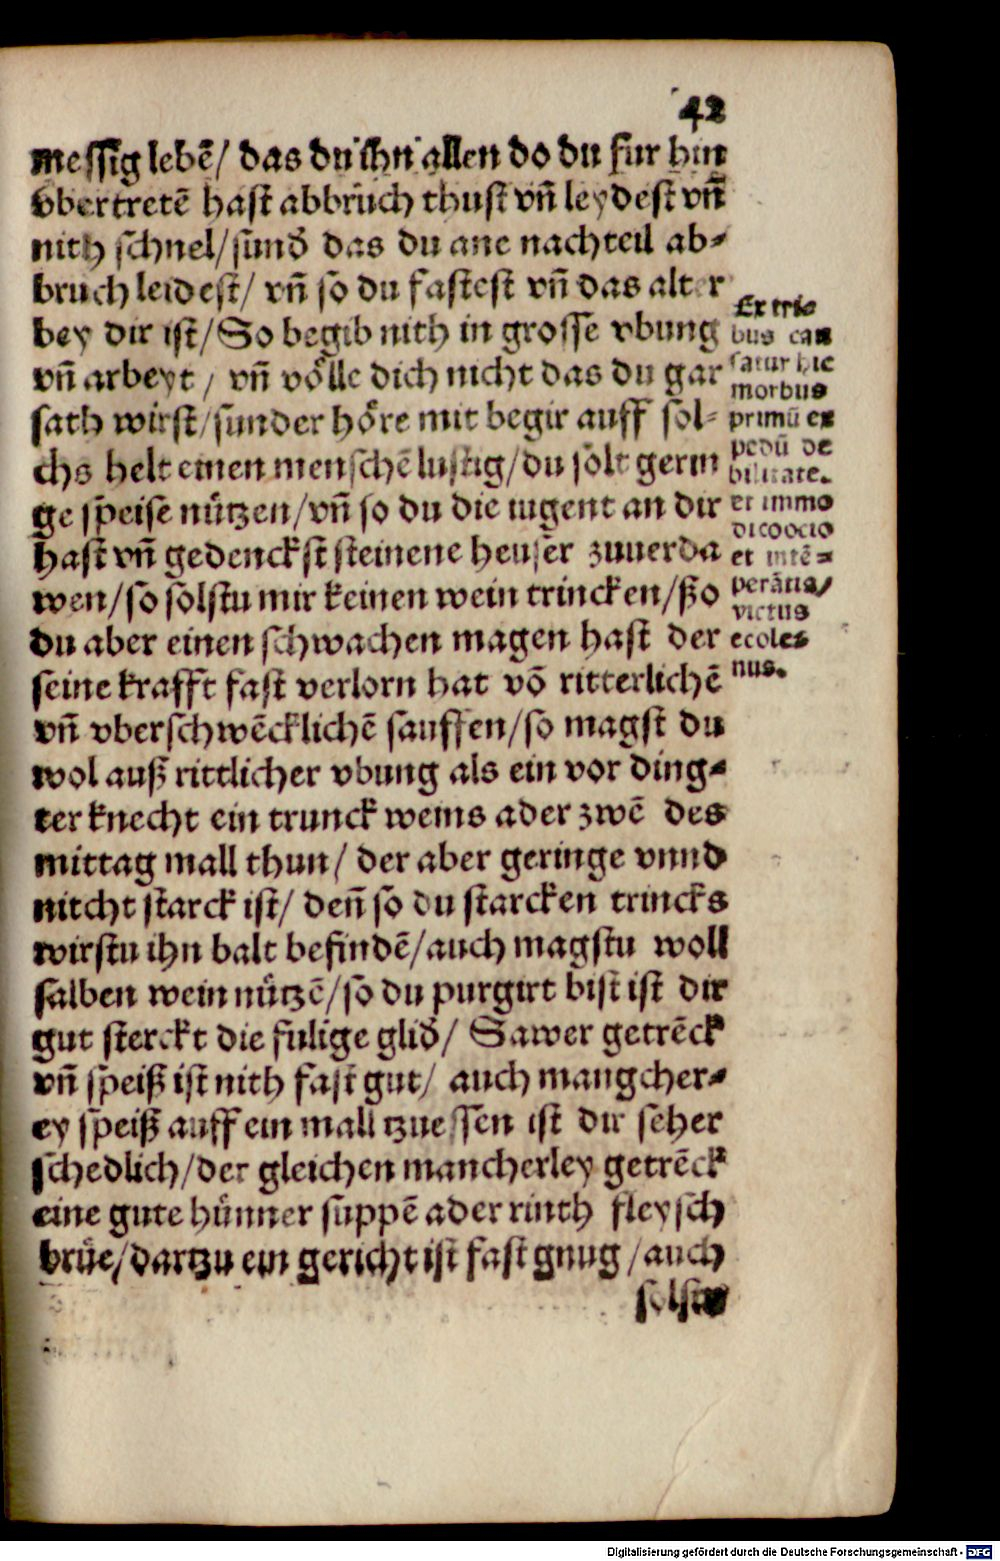 42
messig lebē/ das du ihn allen do du fur hin
vbertretē hast abbrüch thust vñ leydest vñ
nith schnel/sund̄ das du ane nachteil ab-
bruch leidest/ vñ so du fastest vñ das alter
bey dir ist/So begib nith in grosse vbung
vñ arbeyt / vñ völle dich nicht das du gar
sath wirst/sunder höre mit begir auff sol-
chs helt einen menschē lustig/du solt gerin
ge speise nützen/vñ so du die iugent an dir
hast vñ gedenckst steinene heuser zuuerda
wen/so solstu mir keinen wein trincken/ßo
du aber einen schwachen magen hast der
seine krafft fast verlorn hat vō ritterlichē
vñ vberschwēcklichē sauffen/so magst du
wol auß rittlicher vbung als ein vor ding-
ter knecht ein trunck weins ader zwē des
mittag mall thun/ der aber geringe vnnd
nitcht starck ist/ deñ so du starcken trincks
wirstu ihn balt befindē/auch magstu woll
salben wein nützē/so du purgirt bist ist dir
gut sterckt die fulige glid̄/ Sawer getrēck
vñ speiß ist nith fast gut/ auch mangcher-
ey speiß auff ein mall tzuessen ist dir seher
schedlich/der gleichen mancherley getrēck
eine gute hünner suppē ader rinth fleysch
brüe/dartzu ein gericht ist fast gnug /auch
solstu
Ex tri-
bus cau
satur hic
morbus
primū ex
pedū de
bilitate.
et immo
et intē-
perātia/
victus
ecoles
nus.
Digitalisierung gefördert durch die Deutsche Forschungsgemeinschaft - DFG